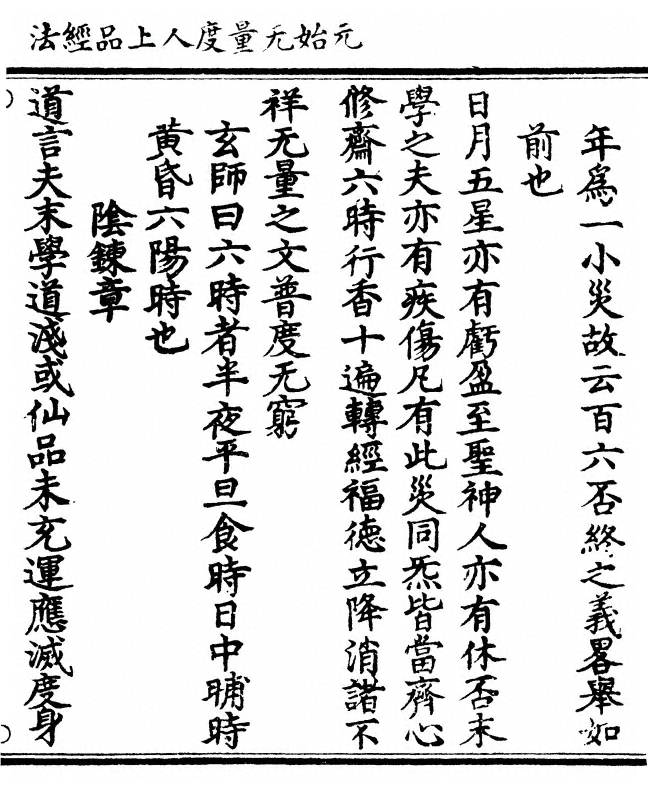 元始无量度人上品經法
年爲一小災故云百六否終之義畧舉如
前也
日月五星亦有虧盈至聖神人亦有休否末
學之夫亦有疾傷凡有此災同炁皆當齊心
修齋六時行香十遍轉經福德立降消諸不
祥无量之文普度无窮
玄師曰六時者半夜平旦食時日中晡時
黄昏六陽時也
陰鍊章
道言夫末學道淺或仙品未充運應滅度身